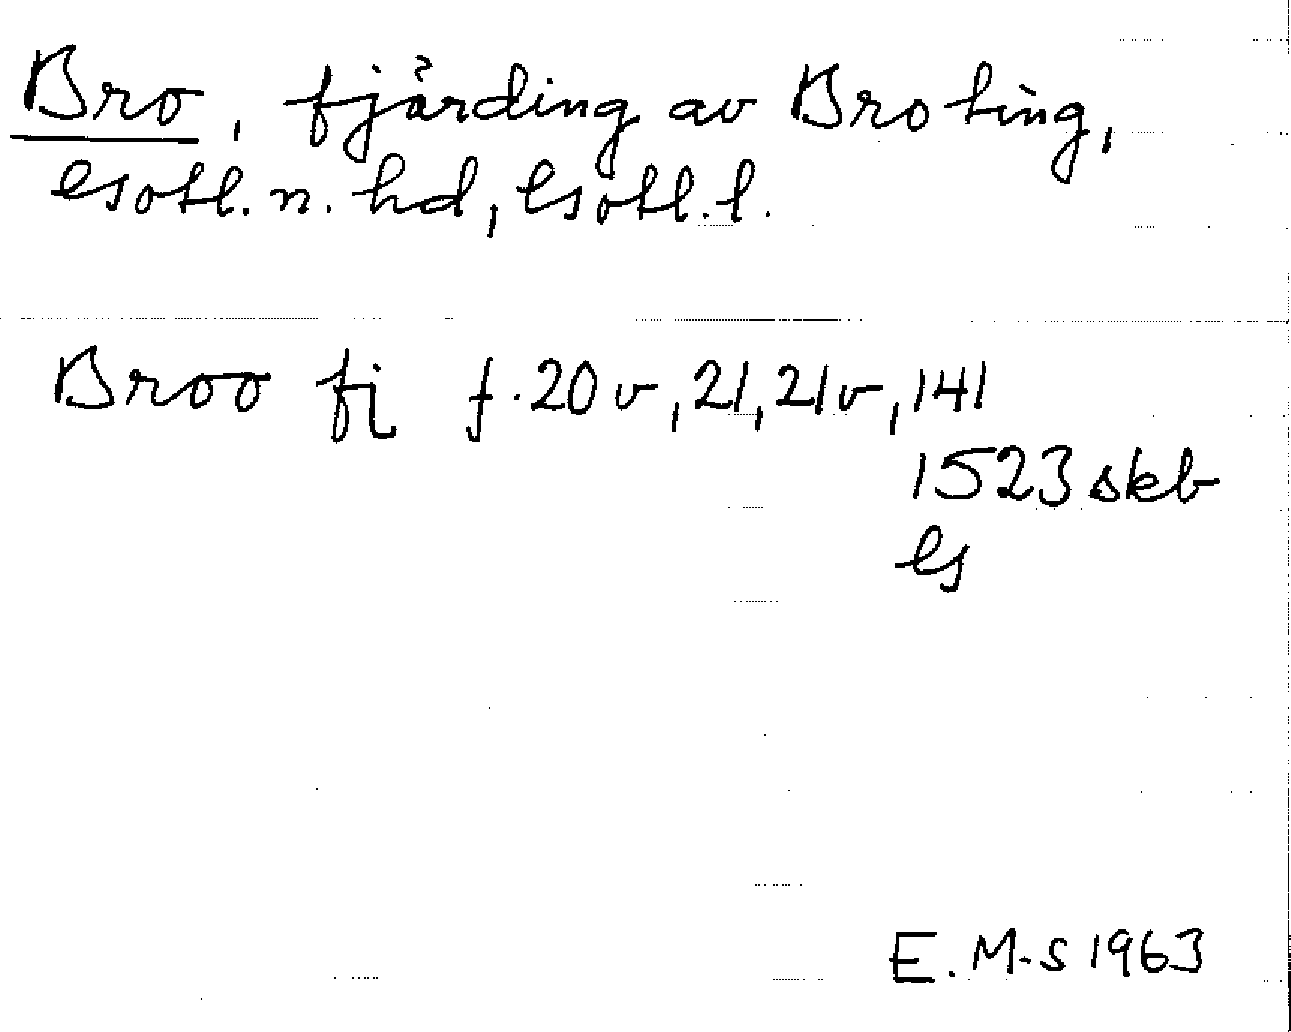 Bro, fjärding av Bro ting,
Gotl. n. hd, Gotl. l.
Broo fj f. 20 v, 21, 21v, 141
1523 skb
G
E. M-s 1963